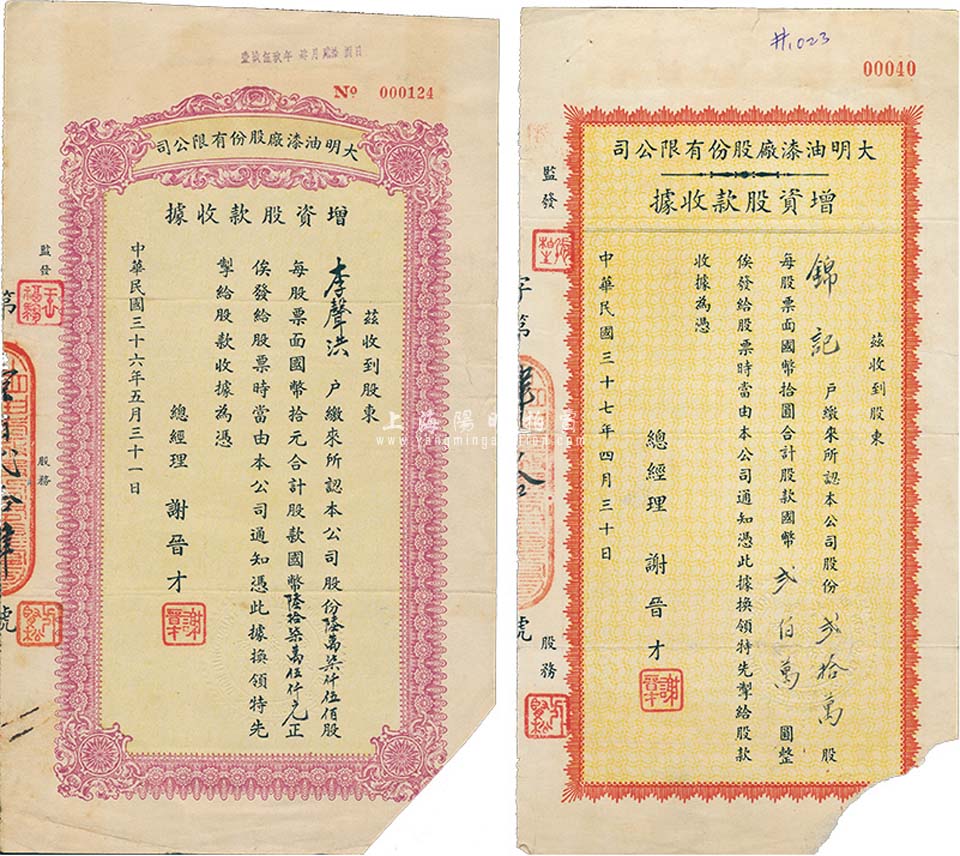 No 000124
司公限有份股廠漆油明大
據收款股資增
茲收到股東
李聲洪 戶繳來所認本公司股份陸萬柒仟伍佰股
每股票面國幣拾元合計股款國幣陸拾柒萬伍仟元正
俟發給股票時當由本公司通知憑此據換領特先
掣給股款收據為憑
總經理 謝晉才
中華民國三十六年五月三十一日
監發
股務
第
號
上海陽明拍賣
#1023
00040
司公限有份股廠漆油明大
據收款股資增
茲收到股東
錦記 戶繳來所認本公司股份弍拾萬股
每股票面國幣拾圓合計股款國幣弍佰萬圓整
俟發給股票時當由本公司通知憑此據換領特先掣給股款
收據為憑
總經理 謝晉才
中華民國三十七年四月三十日
監發
股務
字第
號